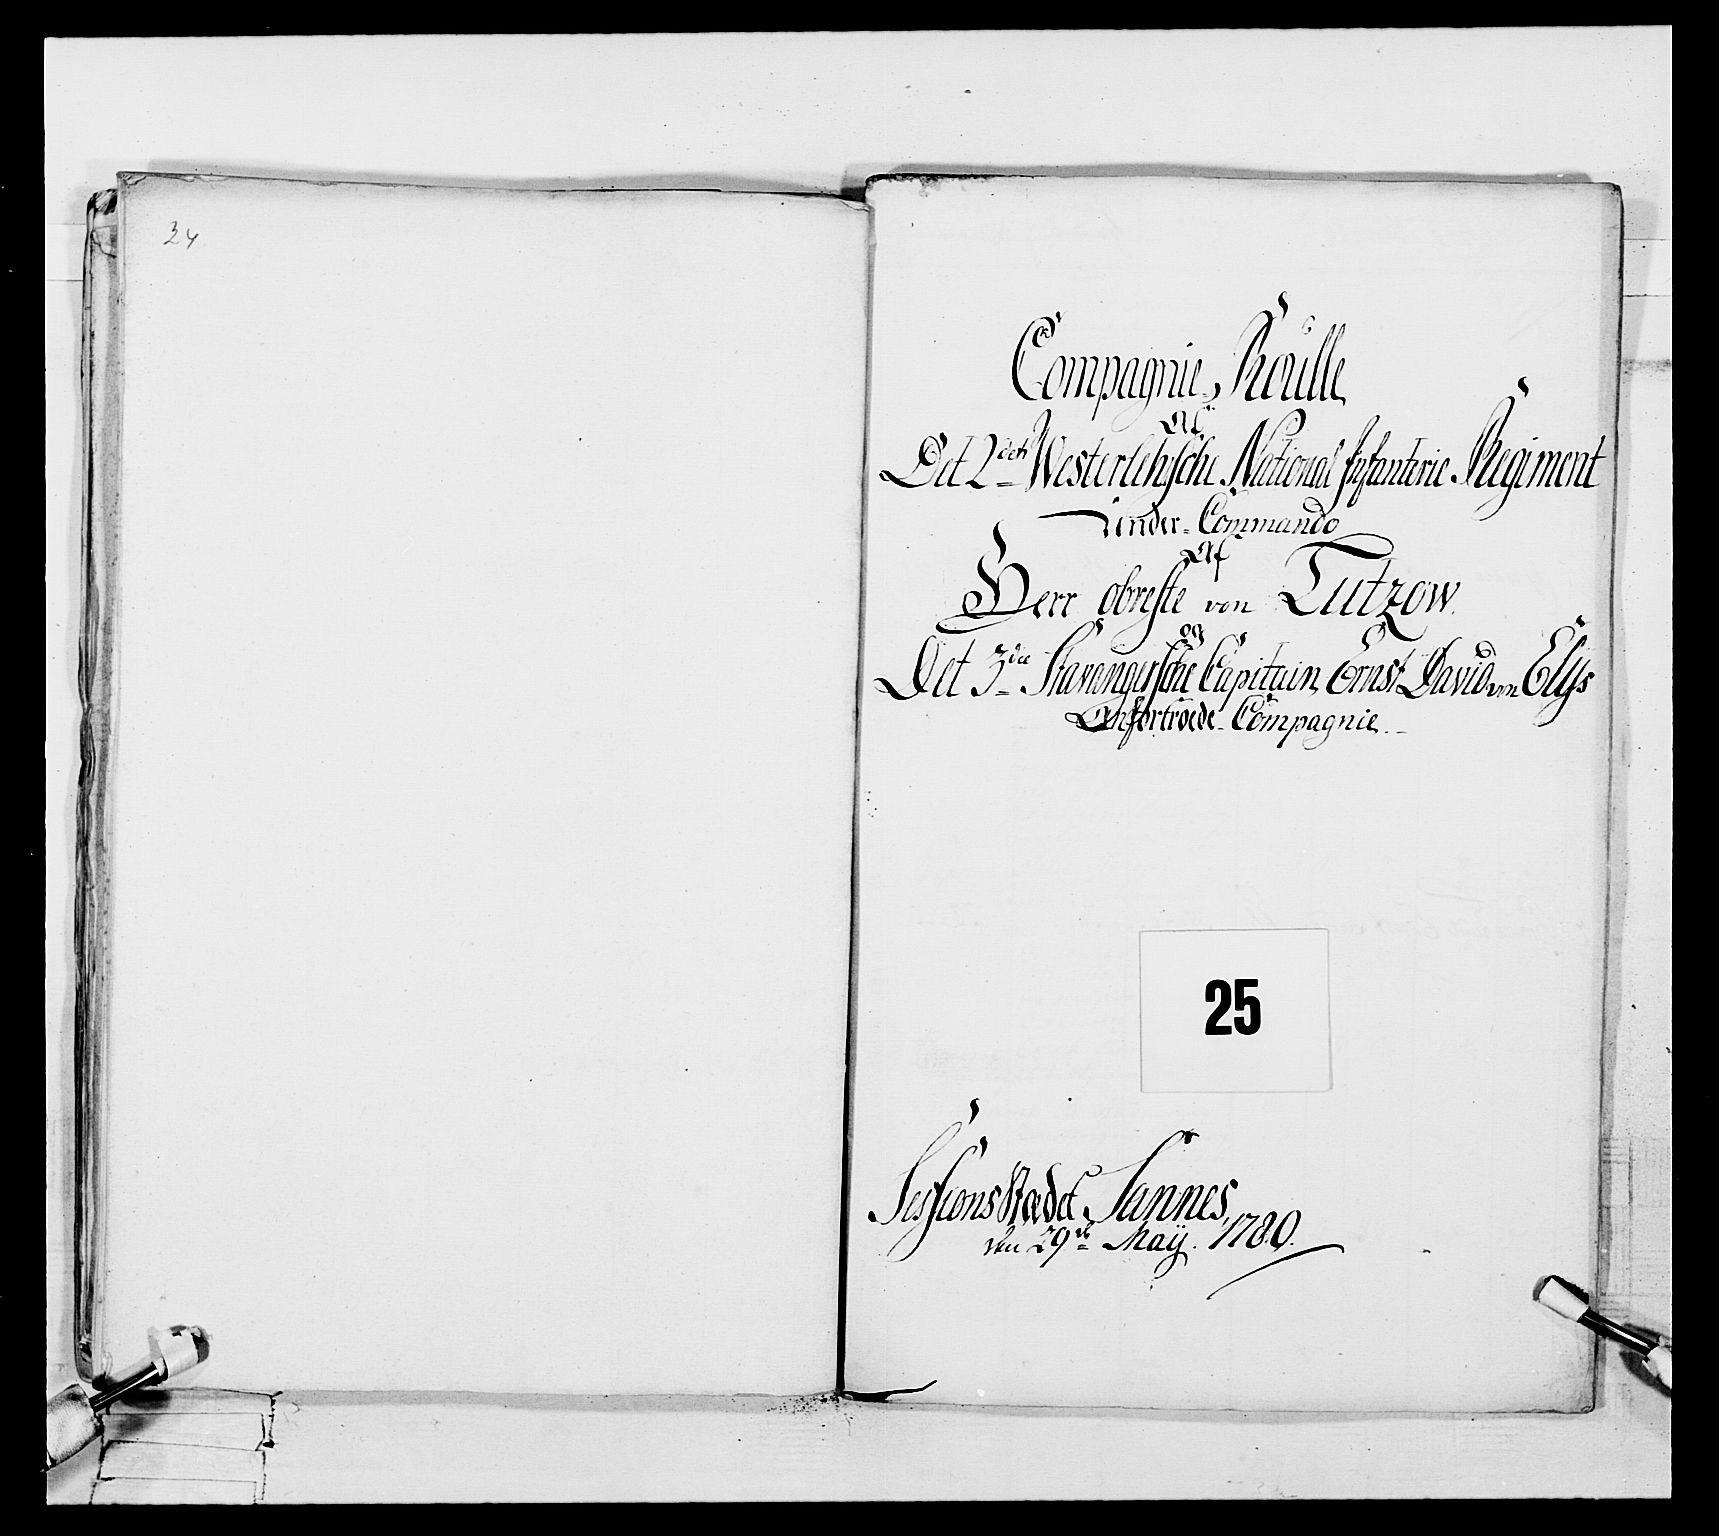 24
Compagnie Roulle
Af
Det 2det Westerlehnsche National Infanterie Regiment
Under Commando
Af
Herr obreste von Lutzow.
og
Det 3die Stavangersche Capitain Ernst David von Elys
Anfortroede Compagnie.
25
Sessions Stædet Sannes,
den 29de Maÿ. 1780.